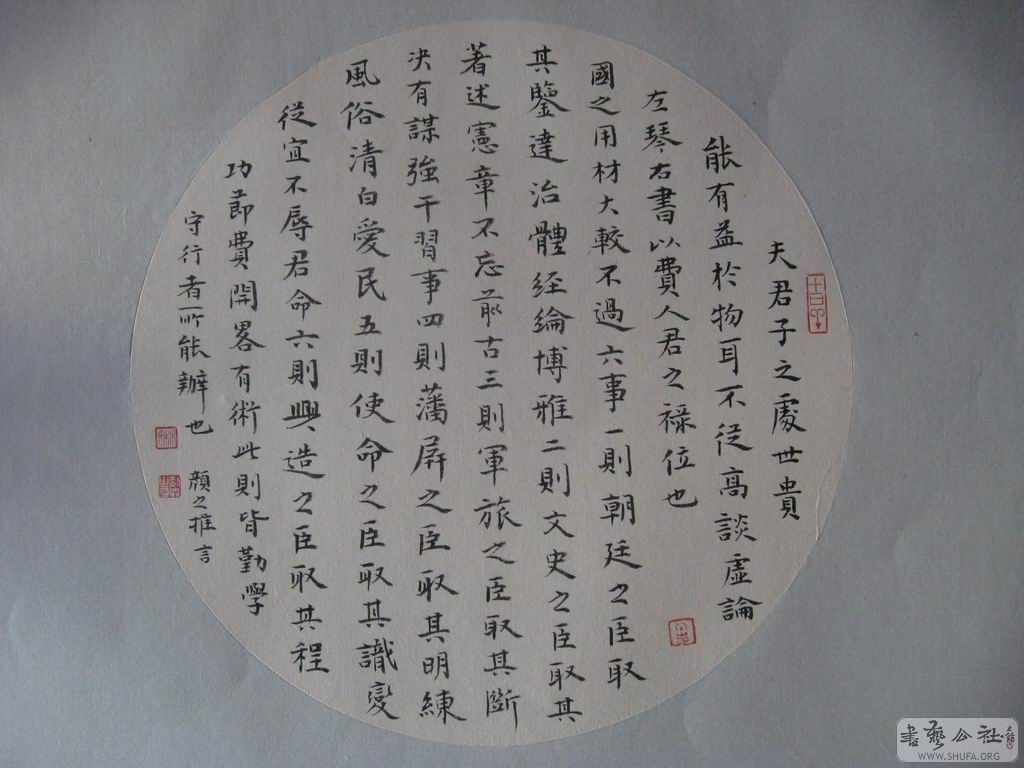 夫君子之處世貴
能有益於物耳不從高談虛論
左琴右書以費人君之祿位也
國之用材大較不過六事一則朝廷之臣取
其鑒達治體經綸博雅二則文史之臣取其
著述憲章不忘前古三則軍旅之臣取其斷
決有謀強干習事四則藩屏之臣取其明練
風俗清白愛民五則使命之臣取其識變
從宜不辱君命六則興造之臣取其程
功節費開畧有術此則皆勤學
守行者所能辦也
顏之推言
書藝公社
WWW.SHUFA.ORG